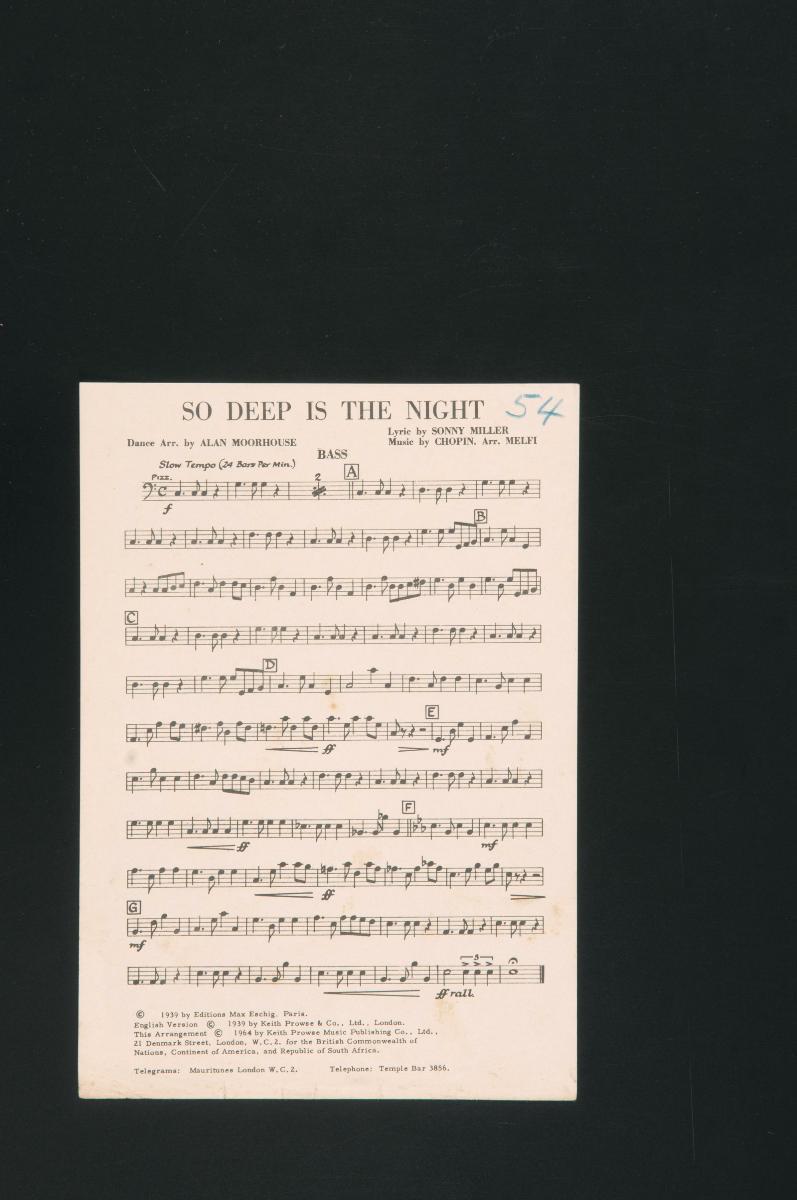 SO DEEP IS THE NIGHT 54
Lyric by SONNY MILLER
Dance Arr. by ALAN MOORHOUSE Music by CHOPIN. Arr. MELFI
BASS
Slow Tempo (24 Bars Per Min.)
Pizz. 2 A
f
B
C
D
E
ff mf
F
ff mf
ff
G
mf
3
ff rall.
© 1939 by Editions Max Eschig. Paris.
English Version © 1939 by Keith Prowse & Co., Ltd., London.
This Arrangement © 1964 by Keith Prowse Music Publishing Co., Ltd.,
21 Denmark Street, London, W.C.2. for the British Commonwealth of
Nations, Continent of America, and Republic of South Africa.
Telegrams: Mauritunes London W.C.2. Telephone: Temple Bar 3856.